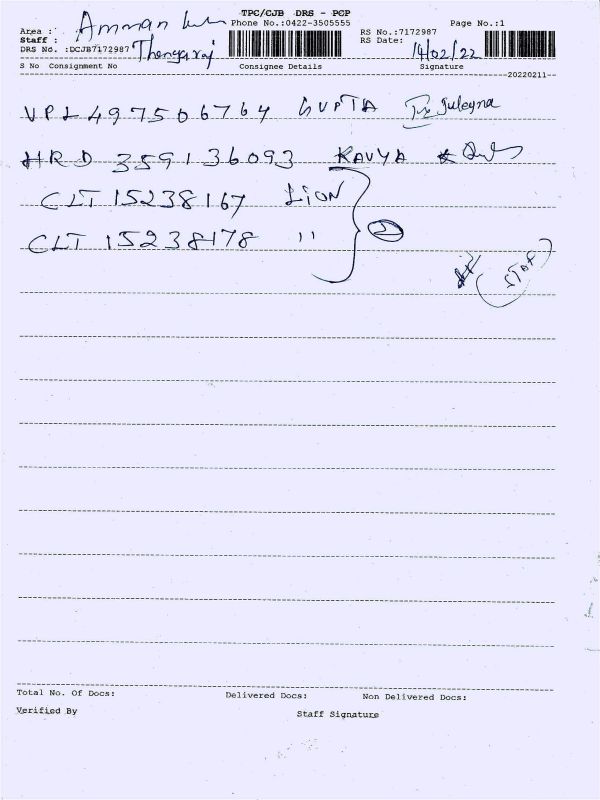 TPC/CJB DRS - PCP
Area : Amman Phone No.:0422-3505555 RS No.:7172987 Page No.:1
Staff : Thangaraj RS Date: 14/02/22
DRS No. :DCJB7172987
S No Consignment No Consignee Details Signature
20220211
VPL497506764 GUPTA
HRD 359136093 KAVYA
CLT 15238167 LION
CLT 15238178 " 2
Total No. Of Docs: Delivered Docs: Non Delivered Docs:
Verified By Staff Signature